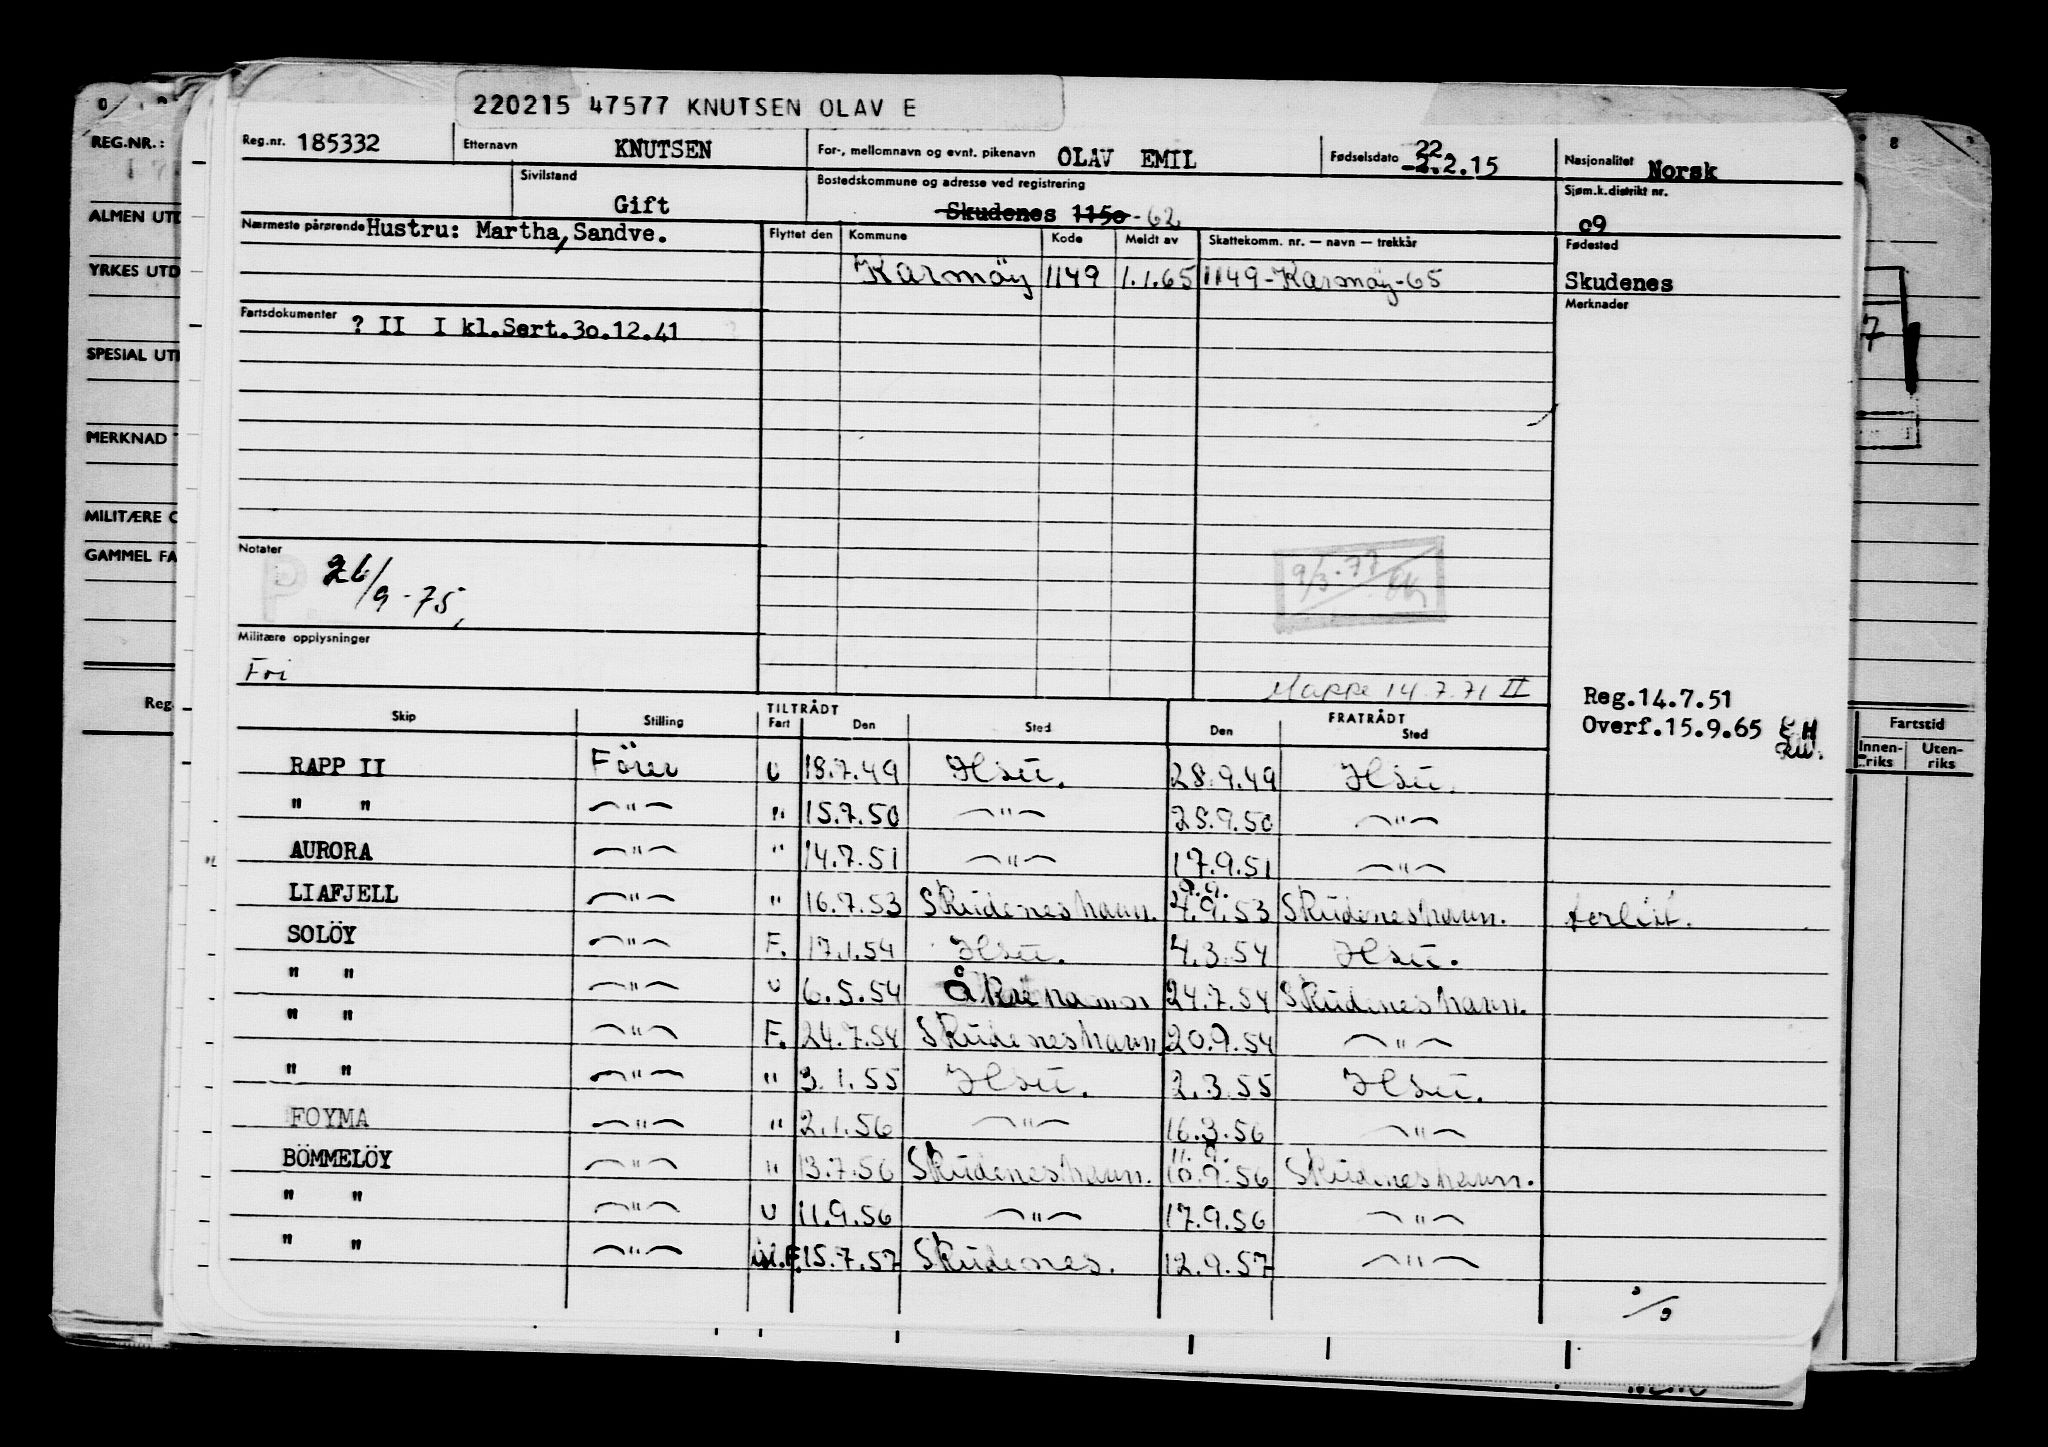 220215 47577 KNUTSEN OLAV E
REG.NR.:
ALMEN UTD
YRKES UTD
SPESIAL UT
MERKNAD
MILITÆRE
GAMMEL FA
Reg.
Reg.nr. 185332 Etternavn KNUTSEN For-, mellomnavn og evnt. pikenavn OLAV EMIL Fødselsdato 22.2.15 Nasjonalitet Norsk
Sivilstand Gift Bostedskommune og adresse ved registrering Skudenes 1150-62 Sjøm.k.distrikt nr. 09
Nærmeste pårørende Hustru: Martha, Sandve. Flyttet den Kommune Kode Meldt av Skattekomm. nr. — navn — trekkår Fødested
Karmöy 1149 1.1.65 1149-Karmöy-65 Skudenes
Merknader
Fartsdokumenter ? II I kl.Sert.3o.12.41
7
Notater 26/9-75,
9/3-77
Militære opplysninger
Fri
Mappe 14.7.71 II
Reg.14.7.51
Overf.15.9.65 EH
Skip Stilling TILTRÅDT Fart Den Sted FRATRÅDT Den Sted
Fartstid
Innenriks Uten-riks
RAPP II Förer U 18.7.49 Hsu. 28.9.49 Hsu.
" " —"— " 15.7.50 —"— 28.9.50 —"—
AURORA —"— " 14.7.51 —"— 17.9.51 —"—
LIAFJELL —"— " 16.7.53 Skudeneshavn. 4.9.53 Skudeneshavn. forlist.
SOLÖY —"— F. 17.1.54 Hsu. 4.3.54 Hsu.
" " —"— U 6.5.54 Åkrehamn 24.7.54 Skudeneshavn.
" " —"— F. 24.7.54 Skudeneshavn 20.9.54 —"—
" " —"— " 3.1.55 Hsu. 2.3.55 Hsu.
FOYMA —"— " 2.1.56 —"— 16.3.56 —"—
BÖMMELÖY —"— " 13.7.56 Skudeneshavn. 10.9.56 Skudeneshavn.
" " —"— U 11.9.56 —"— 17.9.56 —"—
" " —"— isl.F. 15.7.57 Skudenes. 12.9.57 —"—